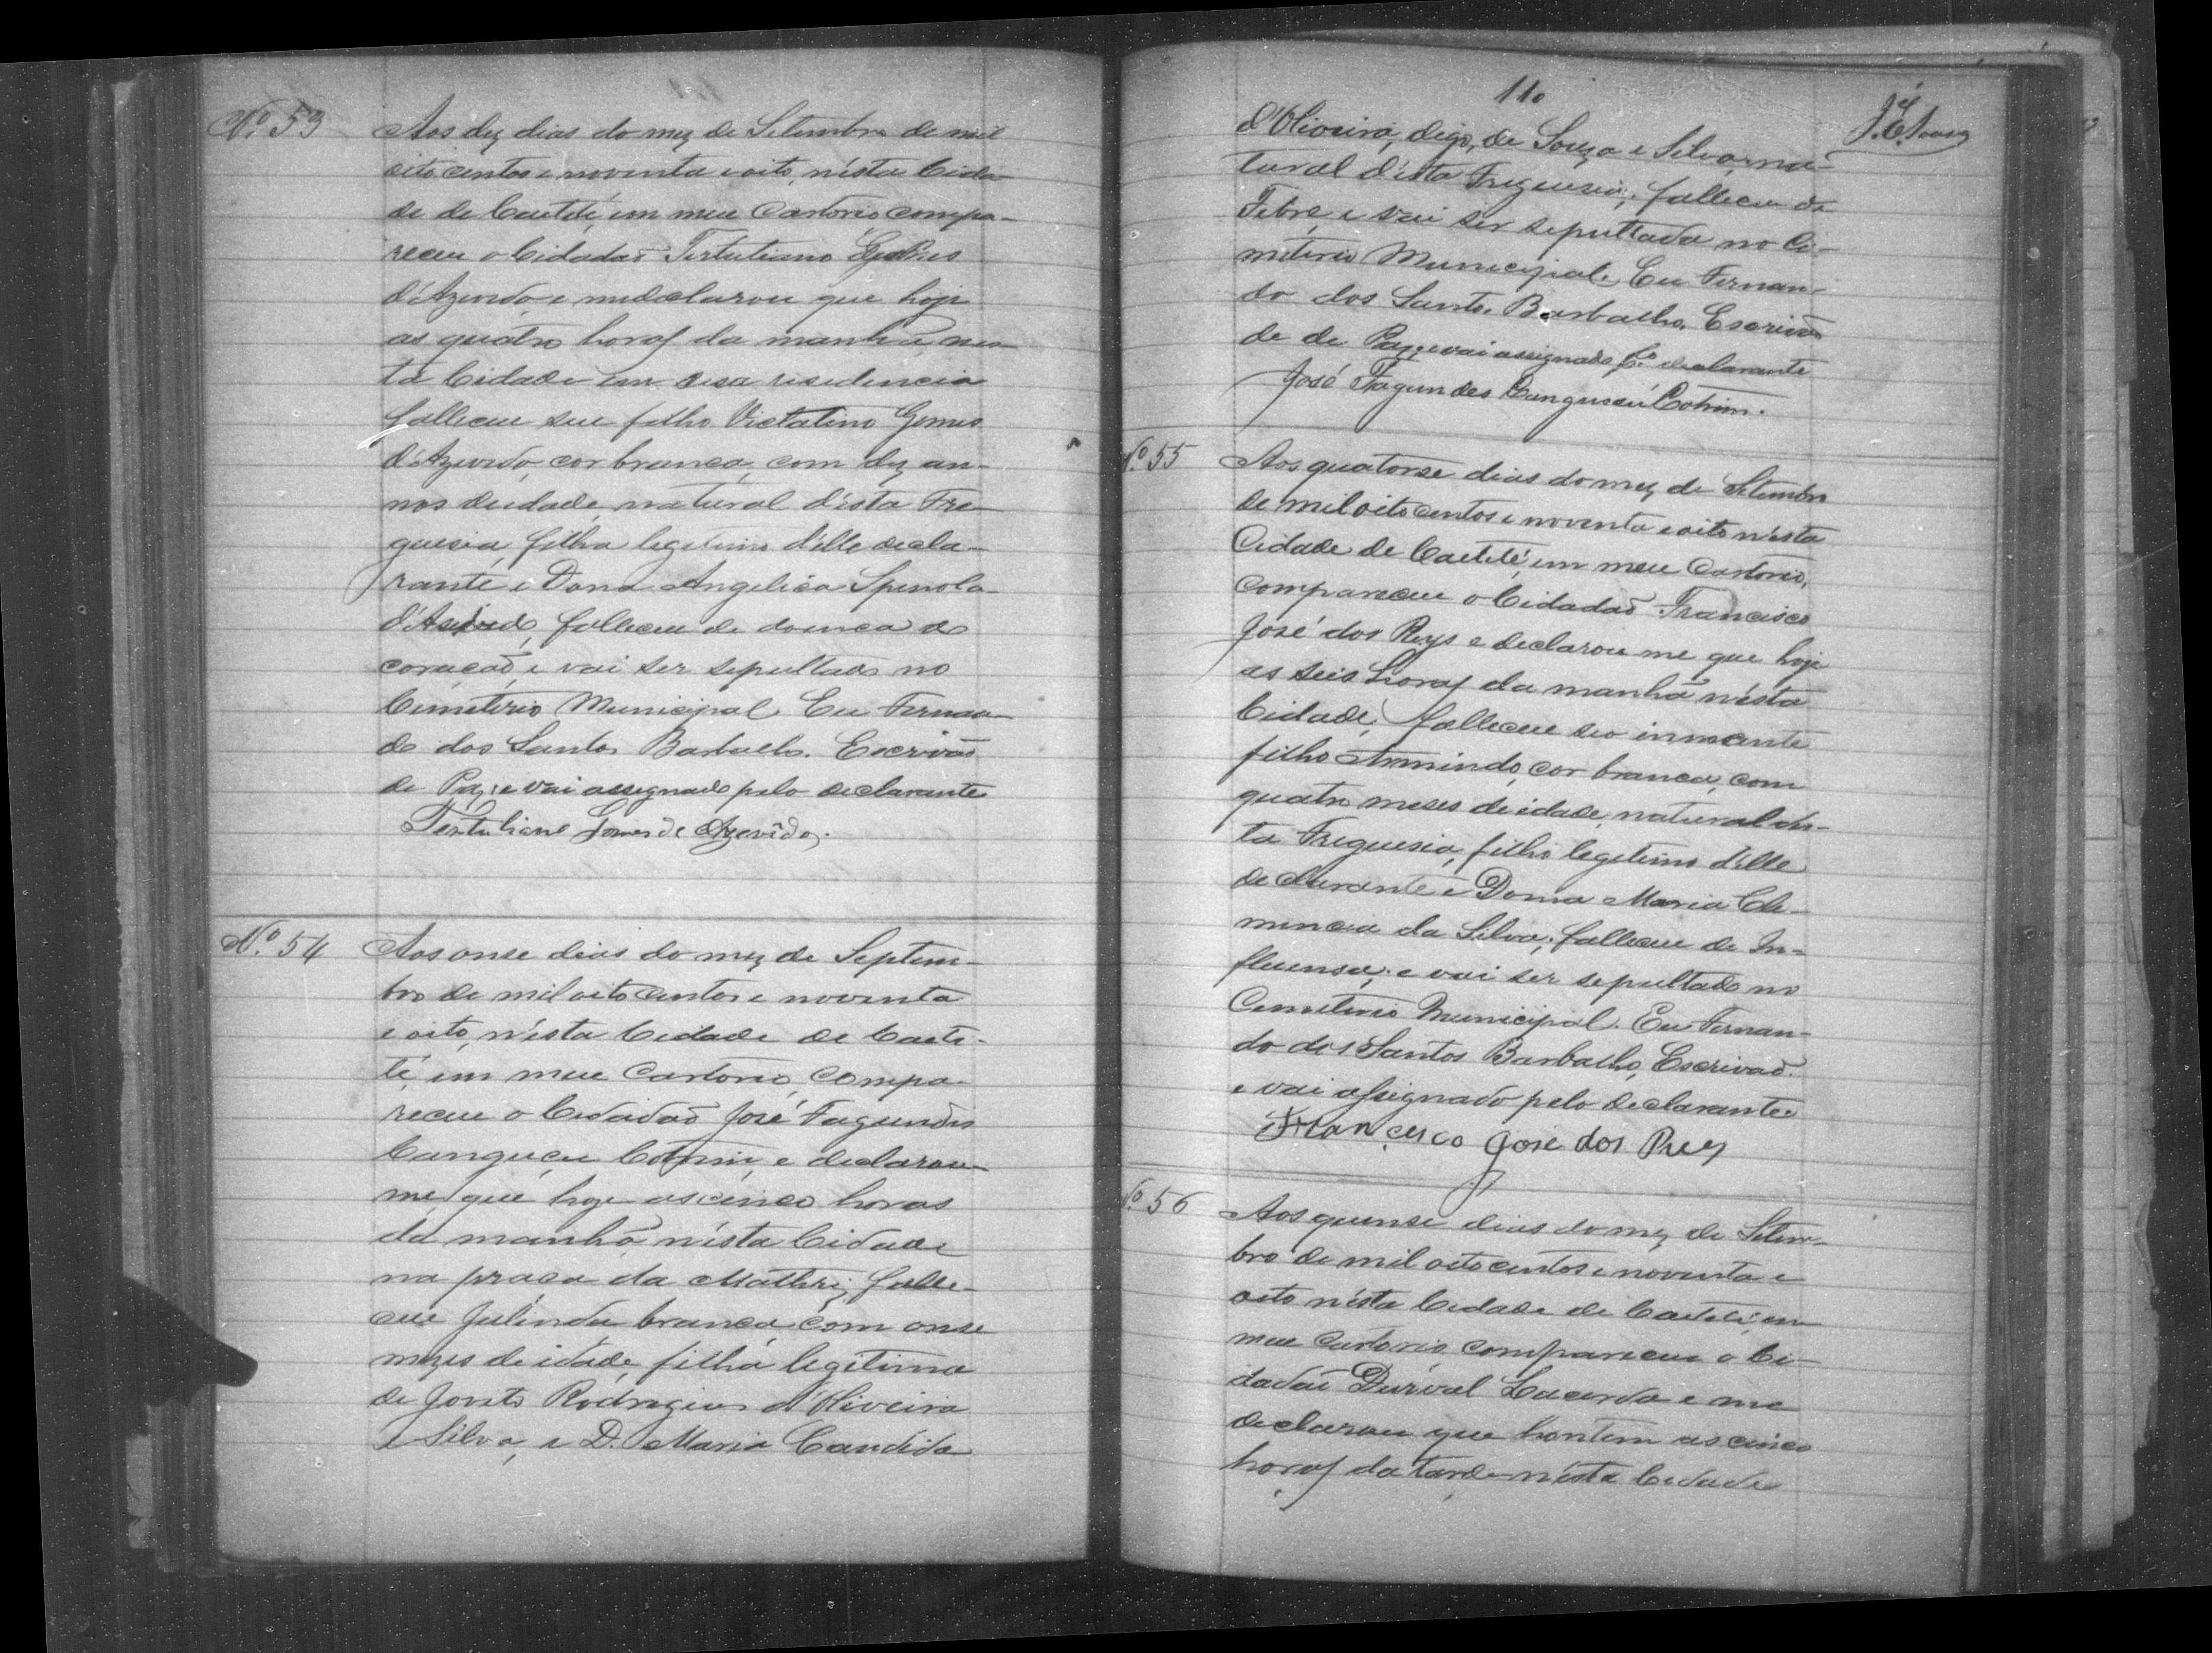 Nº 53
Aos dez dias do mez de Setembro de mil
oito centos e noventa e oito, n'ésta Cida-
de de Caetité, em meu Cartorio compa-
receu o Cidadaõ Tertuliano Gomes
d'Azevedo, e me declarou que hoje
as quatro horas da manhã, nes-
ta Cidade em sua residencia
falleceu seu filho Victalino Gomes
d'Azevedo, cor branca, com dez an-
nos de idade, natural d'ésta Fre-
guesia, filho legitimo d'elle decla-
rante e Dona Angelica Spinola
d'Asevedo, falleceu de doença do
coraçaõ, e vai ser sepultado no
Cimeterio Municipal. Eu Fernan-
do dos Santos Barbalho. Escrivaõ
de Paz, e vai assignado pelo declarante
Tertuliano Gomes de Azevêdo.
Nº 54
Aos onse dias do mez de Septem-
bro de mil oito centos e noventa
e oito, n'ésta Cidade de Caeti-
té, em meu Cartorio, compa-
receu o Cidadaõ José Fagundes
Canguçu Cotrim, e declarou-
me que hoje as cinco horas
da manhã, n'ésta Cidade
na praça da Mathriz, falle-
ceu Julinda branca, com onse
mezes de idade, filha legitima
de Rodrigues d'Oliveira
e Silva, e D. Maria Candida
110
d'Oliveira, digo, de Souza e Silva, na-
tural d'ésta Freguesia; falleceu de
Febre, e vai ser sepultada no Ci-
miterio Municipal. Eu Fernan-
do dos Santos Barbalho, Escrivaõ
de de Paz, e vai assignado p.lo declarante
José Fagundes Cangussú Cotrim.
Nº 55
Aos quatorse dias do mez de Setembro
de mil oito centos e noventa e oito n'ésta
Cidade de Caetité, em meu Cartorio,
compareceu o Cidadaõ Francisco
José dos Reys e declarou me que hoje
as seis horas da manhã n'ésta
Cidade, falleceu seo innocente
filho Armindo, cor branca, com
quatro meses de idade, natural d'es-
ta Freguesia, filho legitimo d'elle
declarante e Donna Maria Cle-
mencia da Silva; falleceu de In-
fluensa; e vai ser sepultado no
Cemiterio Municipal. Eu Fernan-
do dos Santos Barbalho, Escrivaõ.
e vai assignado pelo declarante
Francisco José dos Reys
Nº 56
Aos quinse dias do mez de Setem-
bro de mil oito centos e noventa e
oito n'ésta Cidade de Caetité, em
meu Cartorio compareceu o Ci-
dadaõ Durval Lacerda e me
declarou que hontem as cinco
horas da tarde n'ésta Cidade